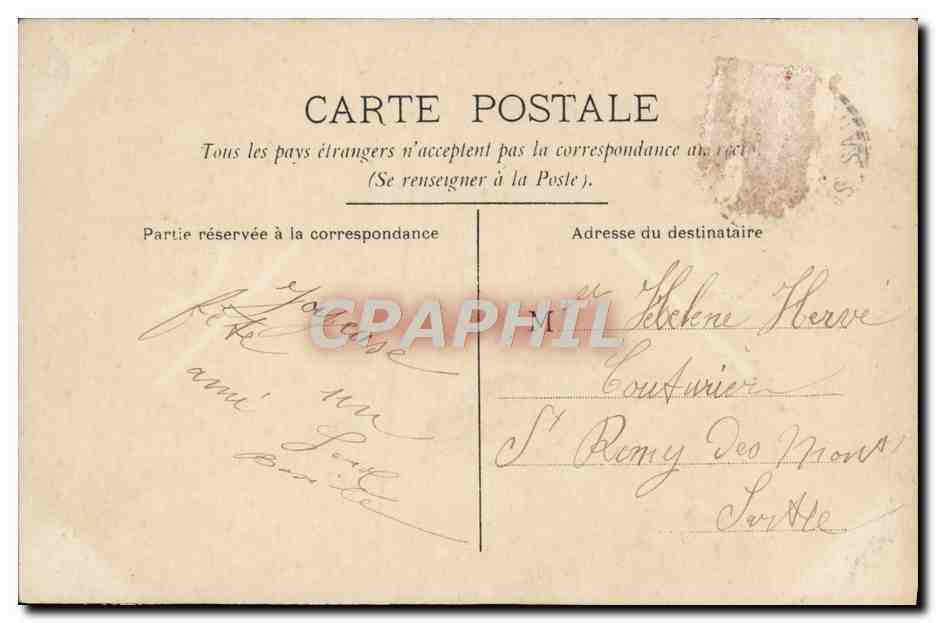 CARTE POSTALE
Tous les pays étrangers n'acceptent pas la correspondance au recto
(Se renseigner à la Poste).
Partie réservée à la correspondance
Adresse du destinataire
Joyeuse
fête
un
ami
M elle Helene Hervé
Couturière
St Remy des Mont
Sarthe
CPAPHIL